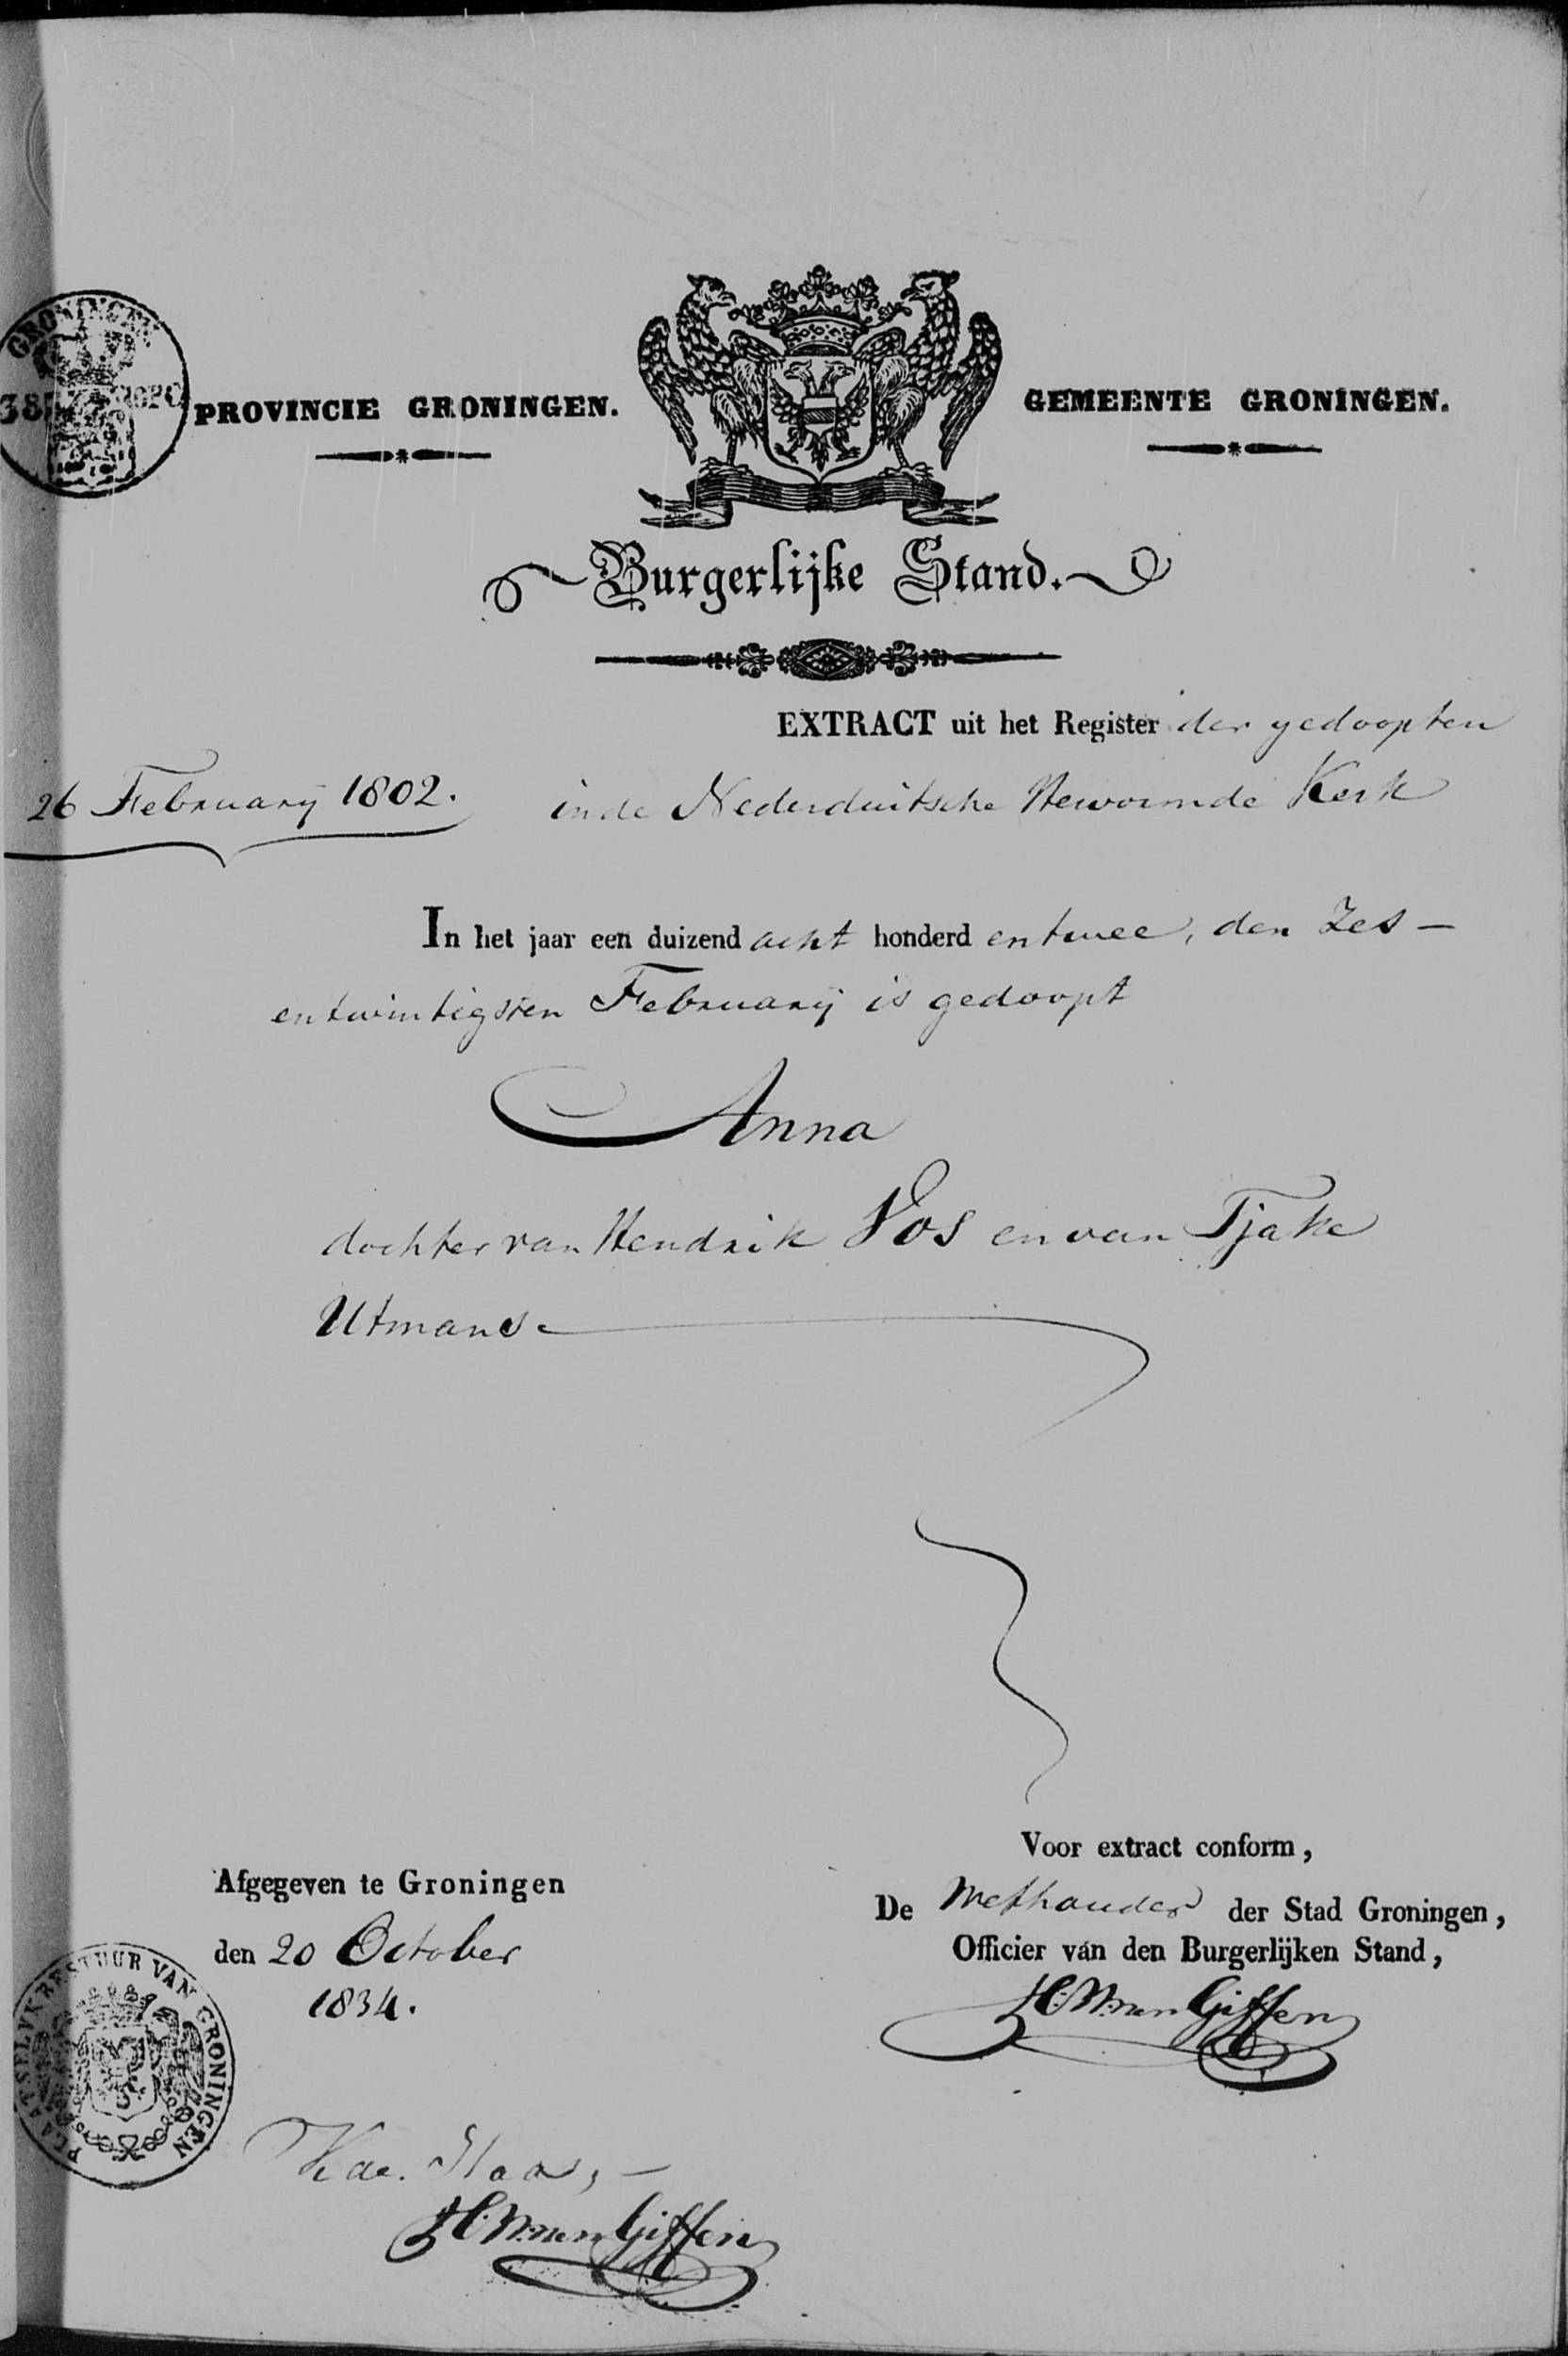 GRONINGEN
PROVINCIE GRONINGEN.
GEMEENTE GRONINGEN.
Burgerlijke Stand.
EXTRACT uit het Register der gedoopten
26 Februarij 1802.
in de Nederduitsche Hervormde Kerk
In het jaar een duizend acht honderd en twee, den Zes—
entwintigsten Februarij is gedoopt
Anna
dochter van Hendrik Vos en van Tjake
Utmans.
Voor extract conform,
De Wethouder der Stad Groningen,
Officier van den Burgerlijken Stand,
H. W. van Giffen
Afgegeven te Groningen
den 20 October
1834.
PLAATSELYK BESTUUR VAN GRONINGEN
H. W. van Giffen